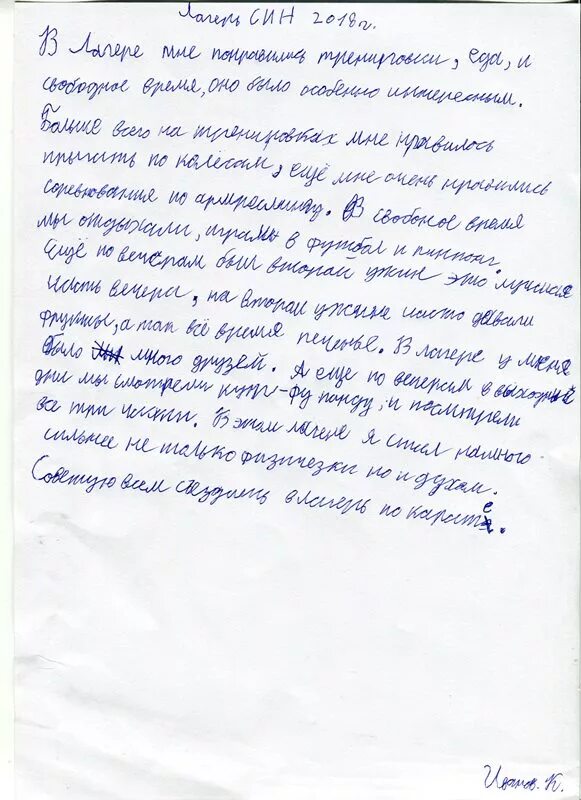 Лагерь СИН 2018г.
В Лагере мне понравились тренировки, еда, и
свободное время, оно было особенно интересным.
Больше всего на тренировках мне нравилось
прыгать по колёсам, ещё мне очень нравились
соревнования по армреслингу. В свобоное время
мы отдыхали, играли в футбол и пинпонг
Ещё по вечерам был второй ужин это лучшая
часть вечера, на втором ужине часто давали
фрукты, а так всё время печенье. В лагере у меня
было много друзей. А еще по вечерам в выходные
дни мы смотрели кунг-фу панду, и посмтрели
все три части. В этом лагере я стал намного
сильнее не только физически но и духом.
Советую всем съездить в лагерь по каратэ.
Иванов. К.